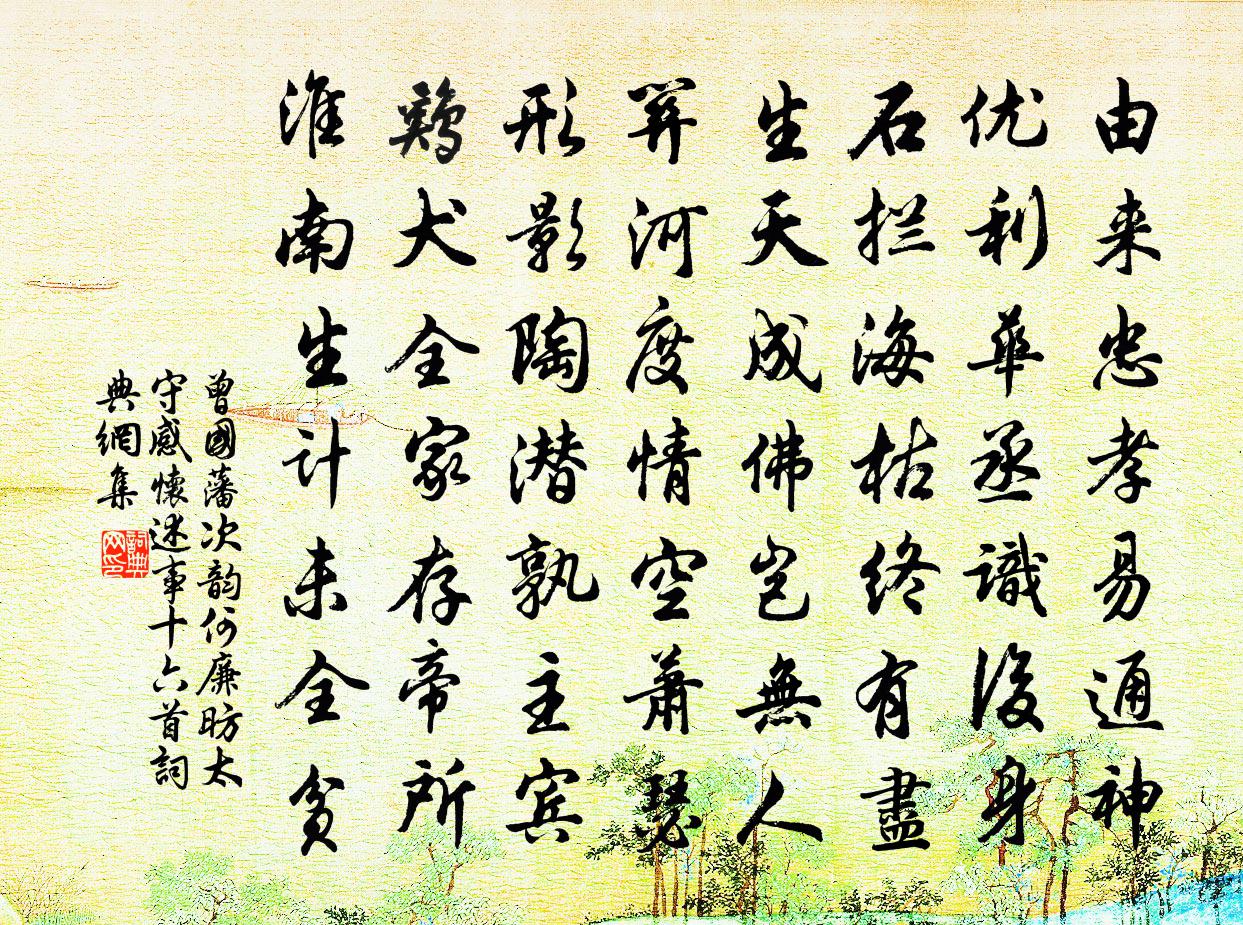 由来忠孝易通神
优利華丞識後身
石拦海枯终有盡
生天成佛岂無人
關河度情空萧瑟
形影陶潜孰主宾
鷄犬全家存帝所
淮南生计未全贫
曾國藩次韵何廉昉太
守感懷述事十六首詞
典網集
詞典
网印